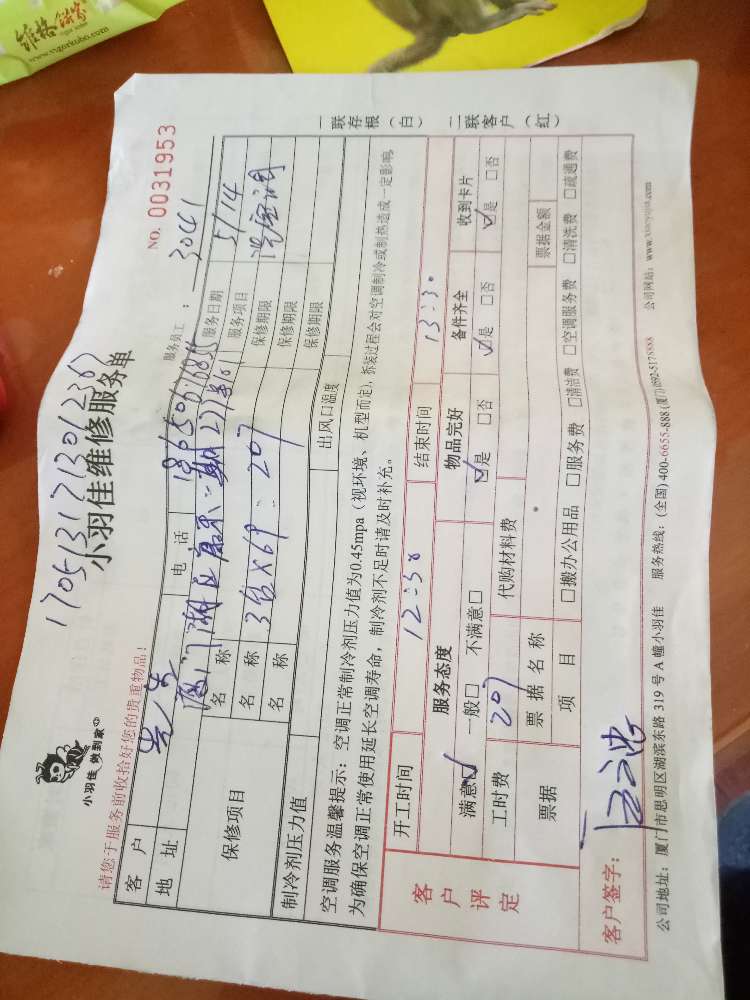 維格餅家
www.vigorkobo.com
小羽佳 做到家
小羽佳维修服务单
NO. 0031953
请您于服务前收拾好您的贵重物品！
服务员工： 3041
客户
电话
服务日期 5/14
地址
服务项目
保修项目
名称 3台×69=207
保修期限
名称
保修期限
名称
保修期限
制冷剂压力值
出风口温度
空调服务温馨提示：空调正常制冷剂压力值为0.45mpa（视环境、机型而定），拆装过程会对空调制冷或制热造成一定影响，
为确保空调正常使用延长空调寿命，制冷剂不足时请及时补充。
客户评定
开工时间 12:30
结束时间 13:30
服务态度
物品完好
备件齐全
收到卡片
满意☑ 一般□ 不满意□
☑是 □否
☑是 □否
☑是 □否
工时费 207
代购材料费
票据
票据名称
票据金额
项目
□搬办公用品 □服务费 □清洁费 □空调服务费 □清洗费 □疏通费
客户签字：
公司地址：厦门市思明区湖滨东路 319 号 A 幢小羽佳 服务热线：(全国) 400-6655-888 (厦门) 0592-5178888 公司网站：www.xiaoyujia.com
一联存根（白） 二联客户（红）